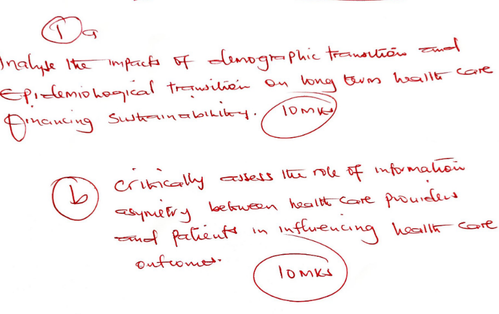 1 a
Analyse the impacts of demographic transition and
Epidemiological transition on long term health care
financing sustainability. 10mks
b
critically assess the role of information
asymetry between health care providers
and patients in influencing health care
outcomes.
10mks